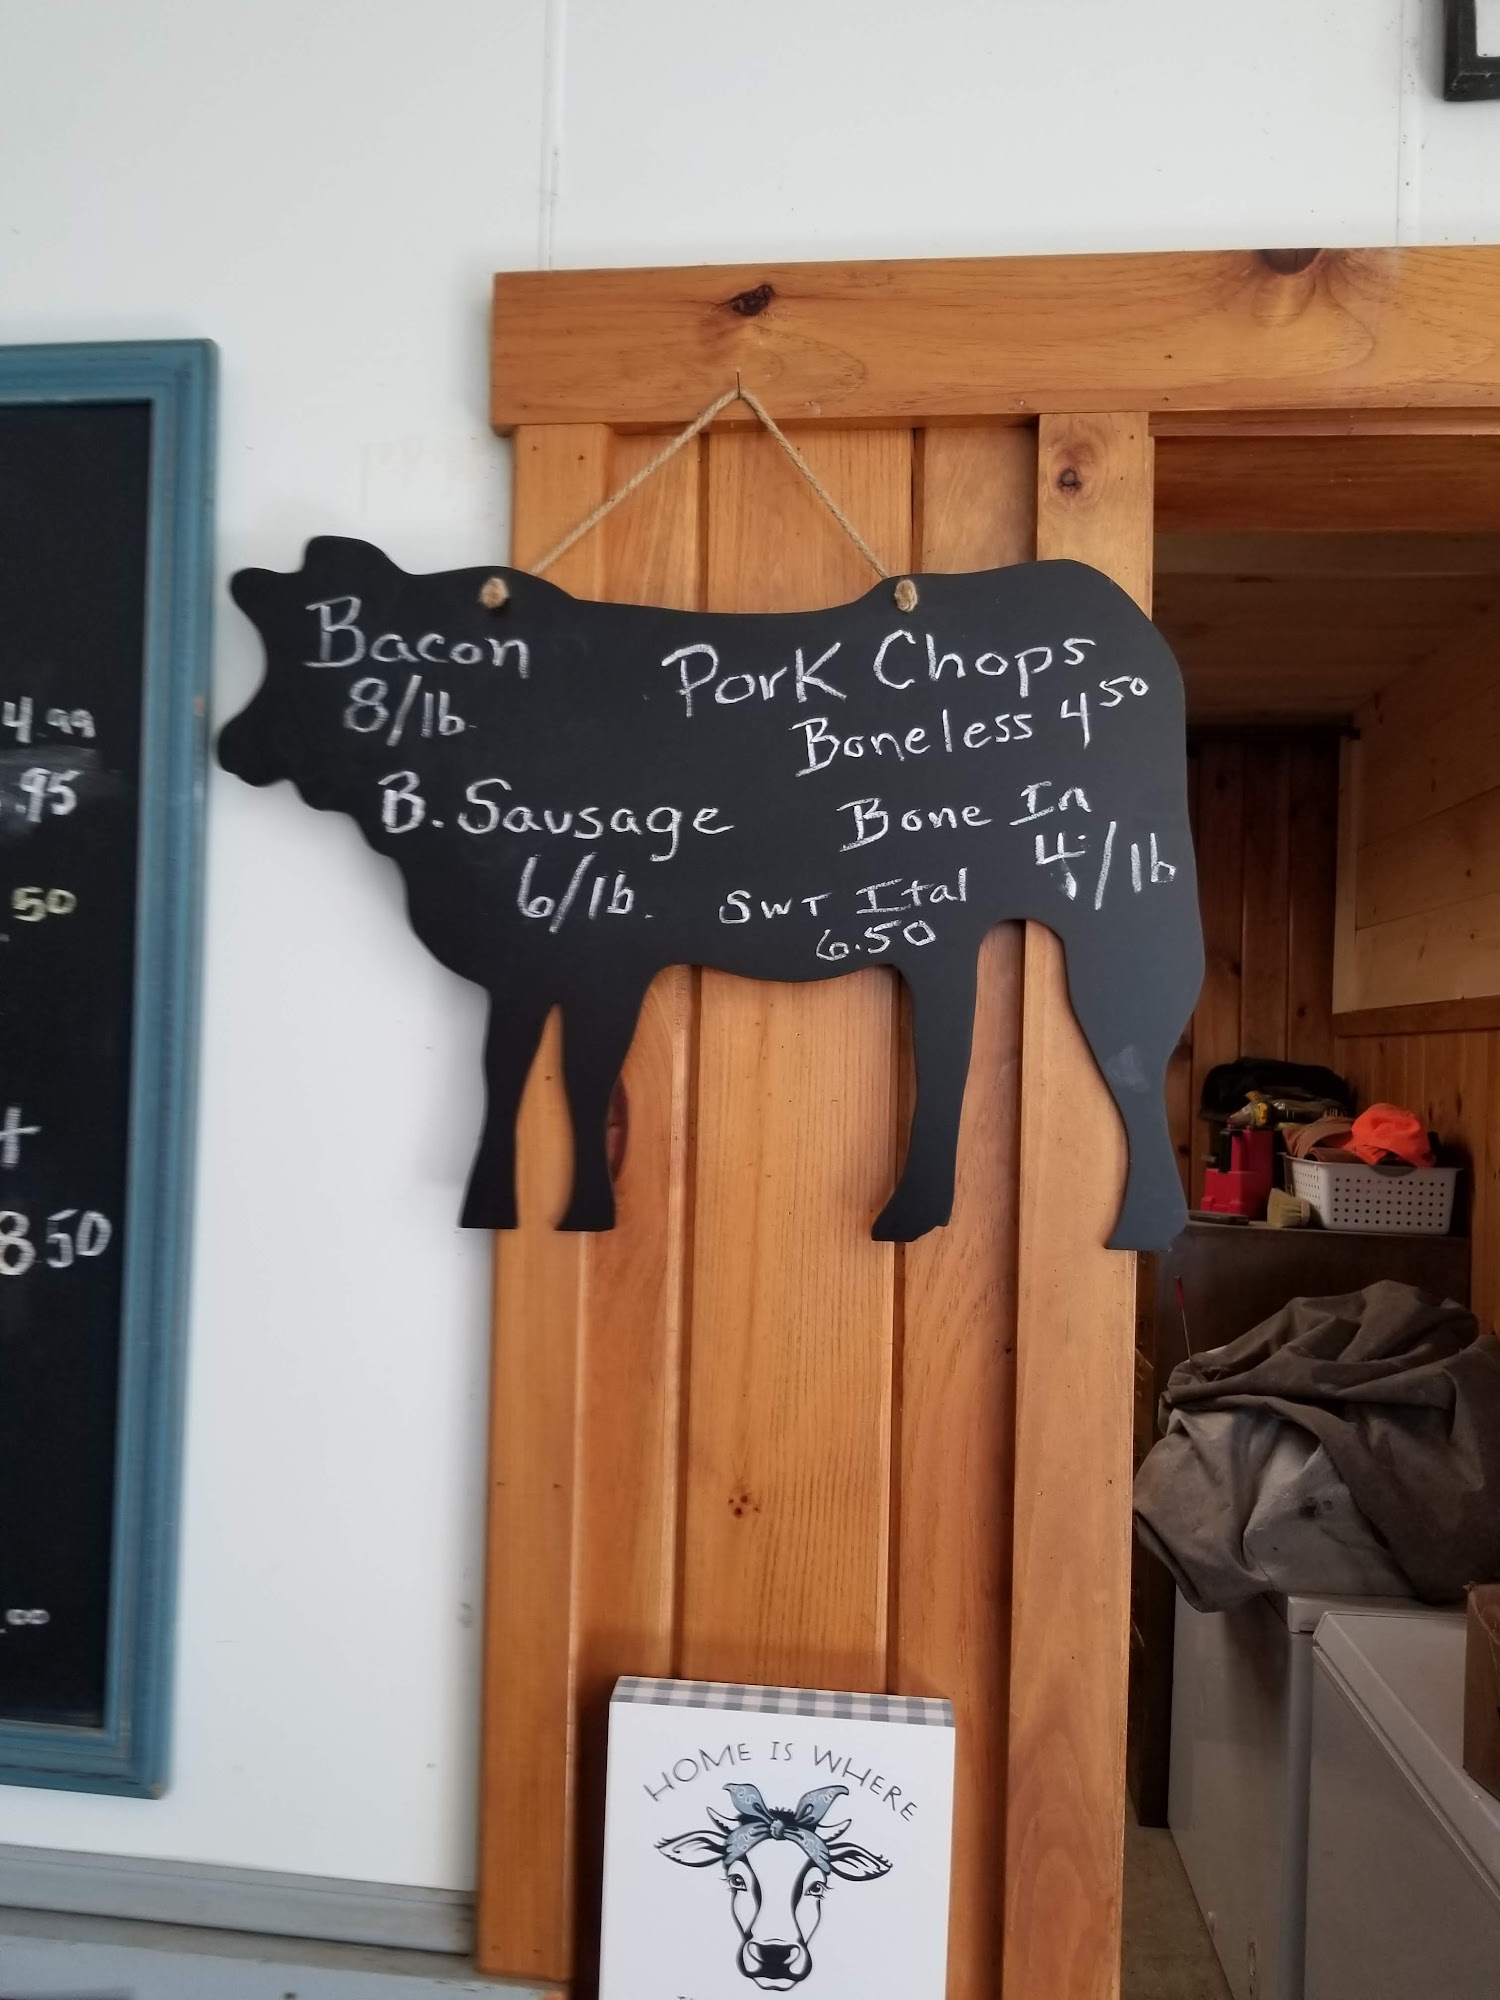 Bacon
8/lb.
B. Sausage
6/lb.
Pork Chops
Boneless 4 50
Bone In
4/lb
SWT Ital
6.50
4.99
.95
50
8 50
.00
HOME IS WHERE